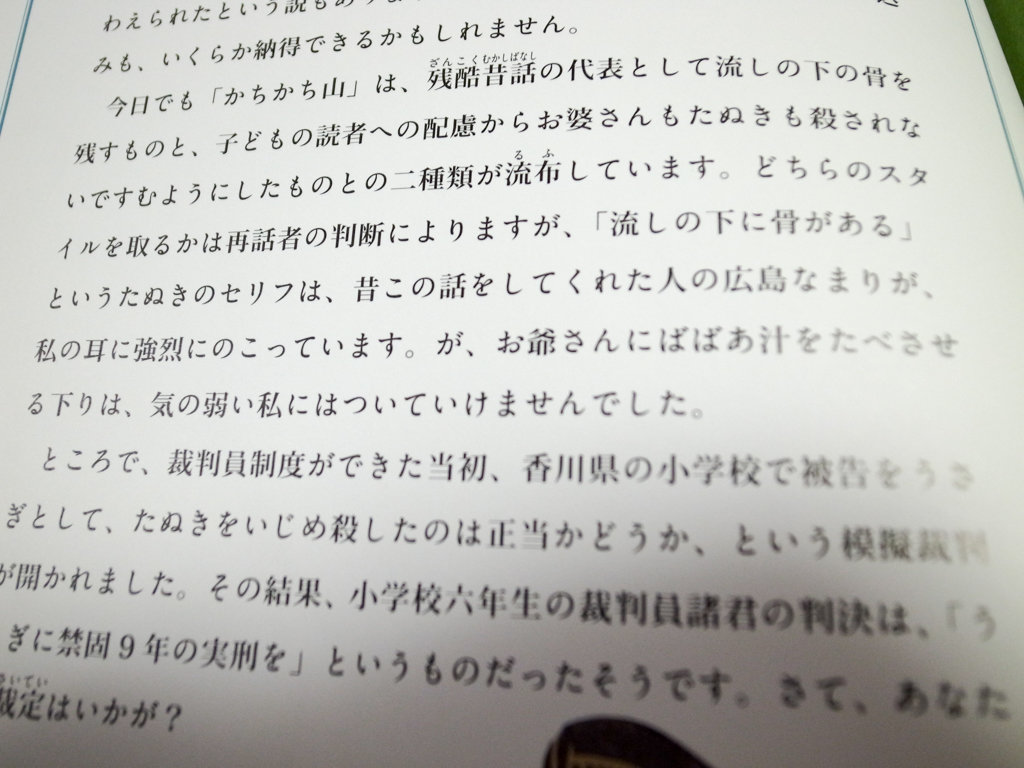 わえられたという説もあり
みも、いくらか納得できるかもしれません。
今日でも「かちかち山」は、残酷昔話の代表として流しの下の骨を
残すものと、子どもの読者への配慮からお婆さんもたぬきも殺されな
いですむようにしたものとの二種類が流布しています。どちらのスタ
イルを取るかは再話者の判断によりますが、「流しの下に骨がある」
というたぬきのセリフは、昔この話をしてくれた人の広島なまりが、
私の耳に強烈にのこっています。が、お爺さんにばばあ汁をたべさせ
る下りは、気の弱い私にはついていけませんでした。
ところで、裁判員制度ができた当初、香川県の小学校で被告をうさ
ぎとして、たぬきをいじめ殺したのは正当かどうか、という模擬裁判
が開かれました。その結果、小学校六年生の裁判員諸君の判決は、「う
ぎに禁固9年の実刑を」というものだったそうです。さて、あなた
裁定はいかが?